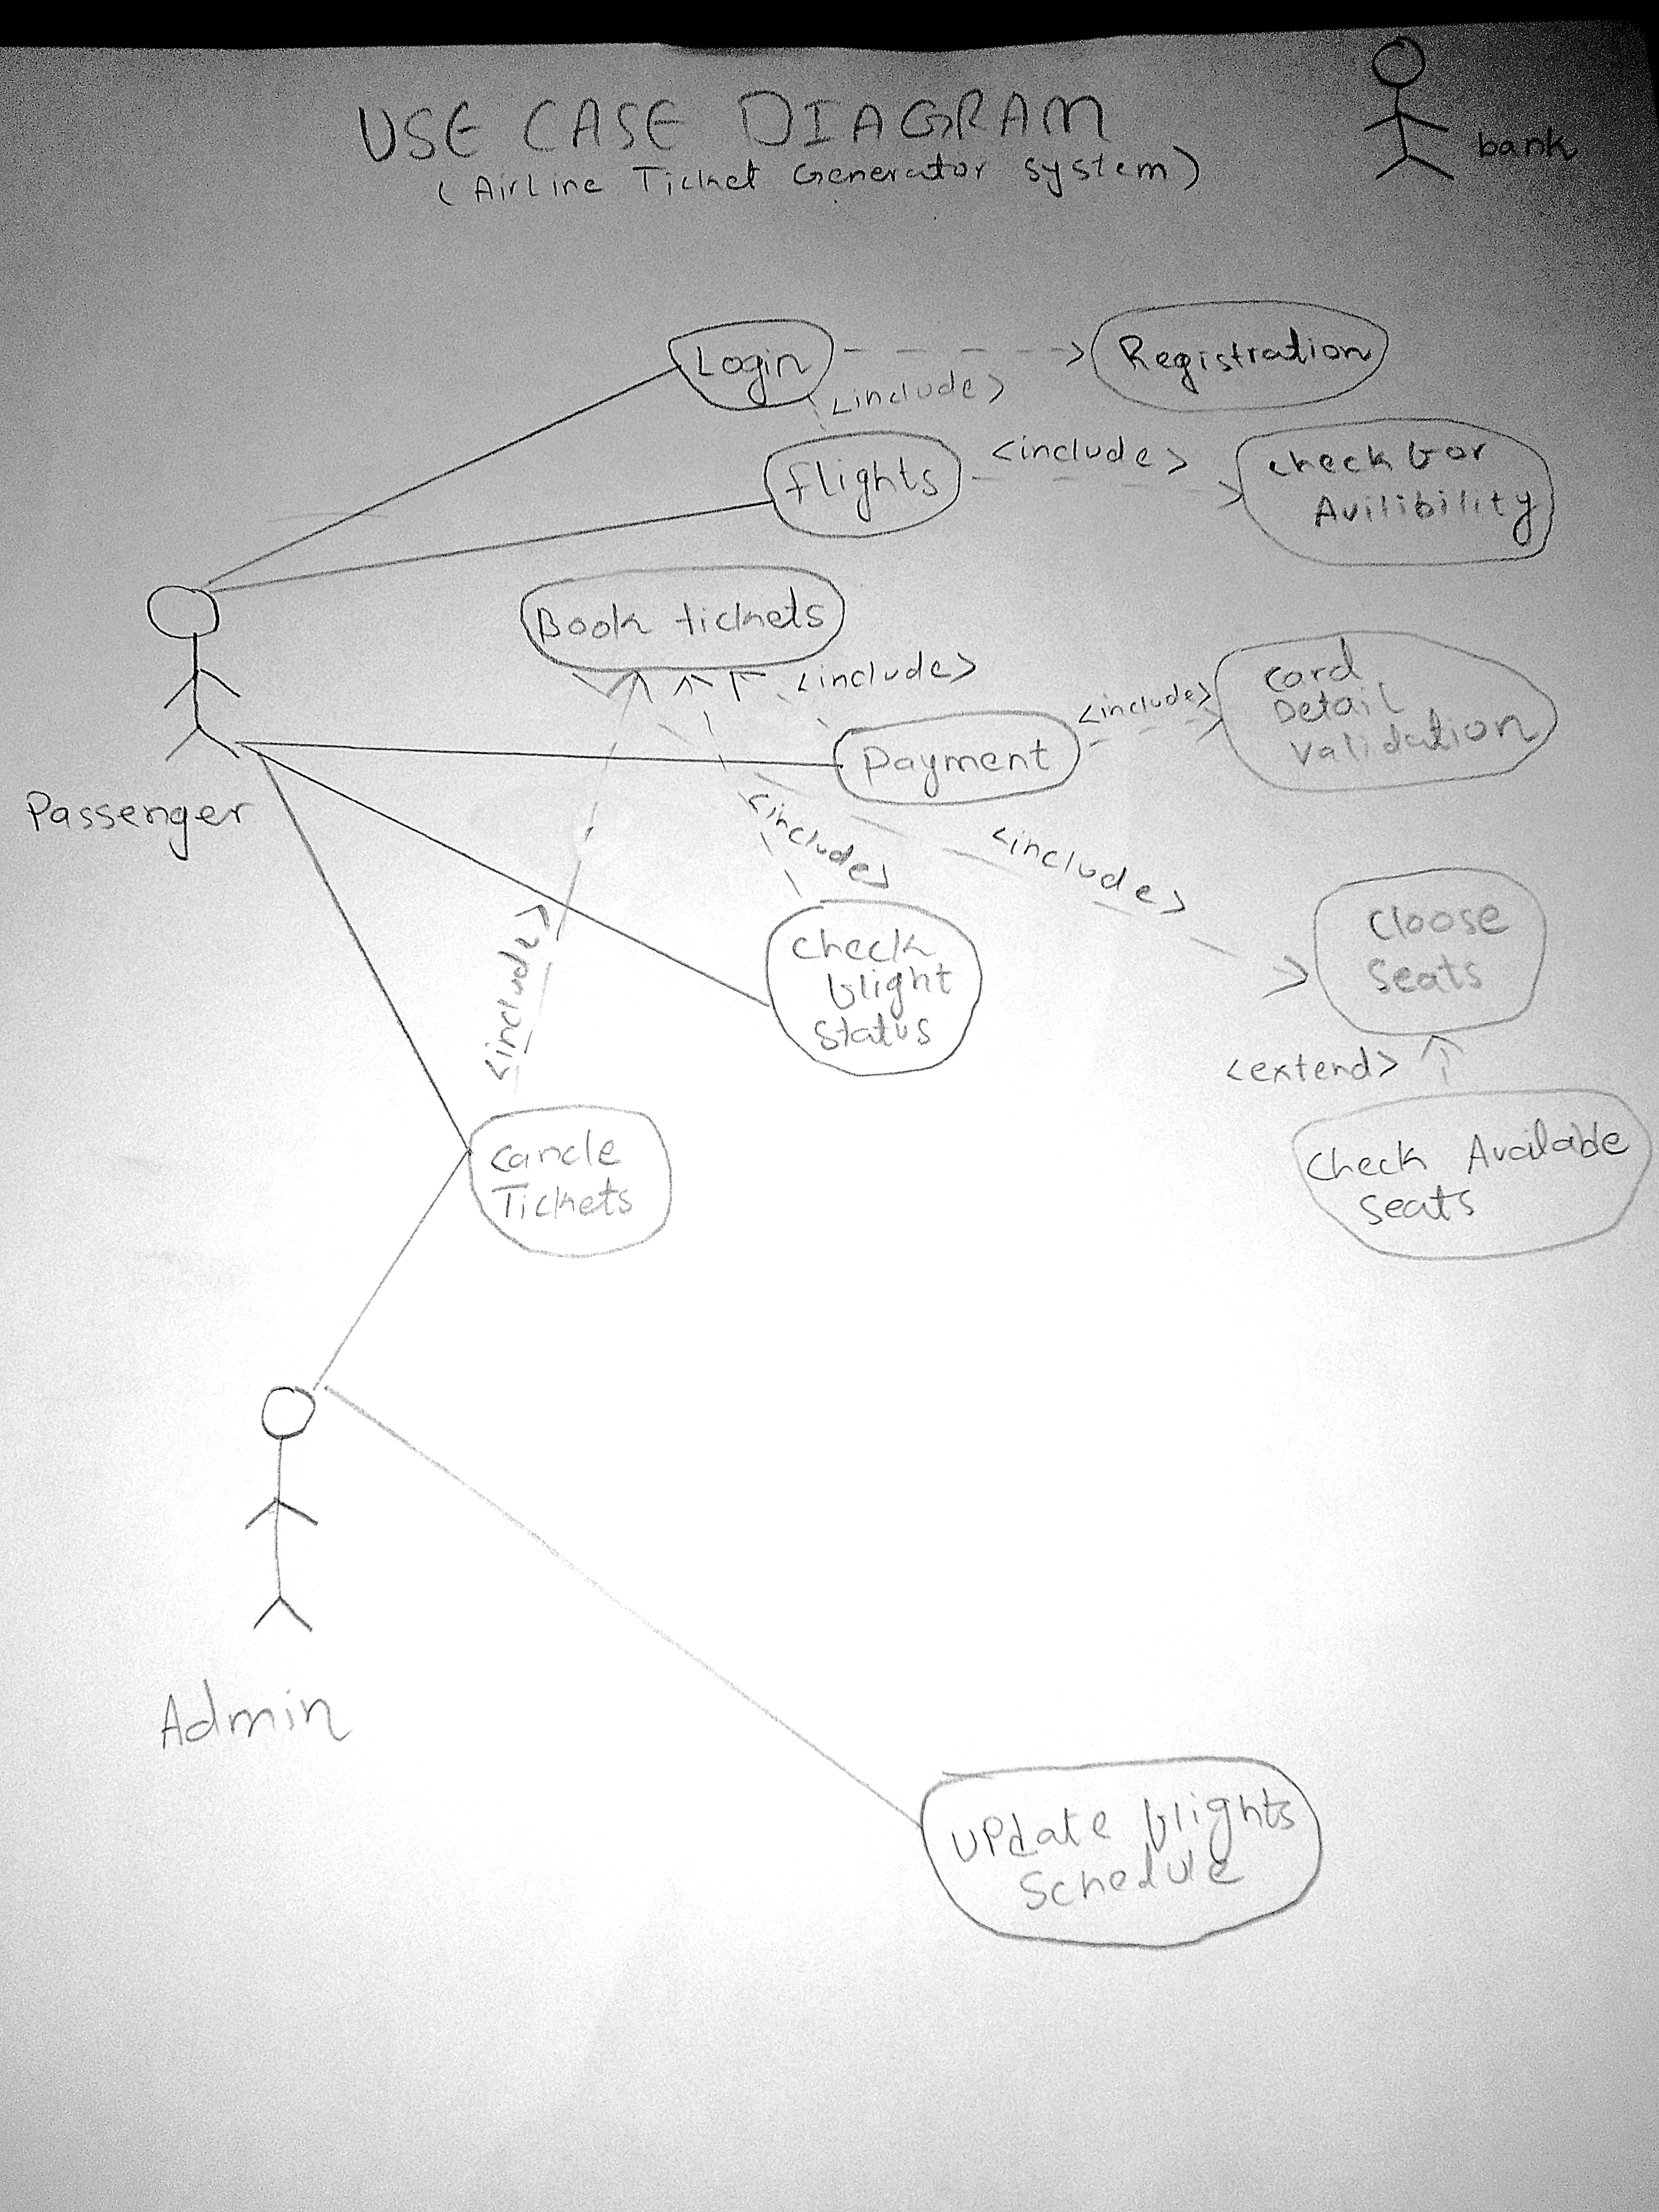 USE CASE DIAGRAM
(AirLine Ticket Generator system)
bank
Login
Registration
<include>
flights
<include>
check for
Avilibility
Book tickets
<include>
Payment
<include>
card
Detail
validation
Passenger
<include>
<include>
<include>
check
flight
status
cloose
seats
<extend>
check Available
seats
cancle
Tickets
Admin
update flights
schedule